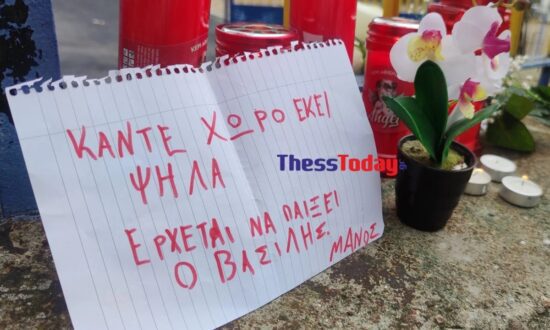 ΚΑΝΤΕ ΧΩΡΟ ΕΚΕΙ
ΨΗΛΑ
ΕΡΧΕΤΑΙ ΝΑ ΠΑΙΞΕΙ
Ο ΒΑΣΙΛΗΣ.
ΜΑΝΟΣ
ThessToday